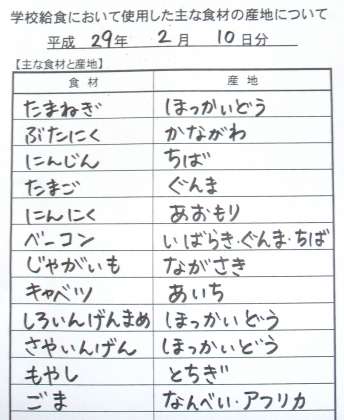 学校給食において使用した主な食材の産地について
平成 29年 2月 10日分
【主な食材と産地】
食材 産地
たまねぎ ほっかいどう
ぶたにく かながわ
にんじん ちば
たまご ぐんま
にんにく あおもり
ベーコン いばらき・ぐんま・ちば
じゃがいも ながさき
キャベツ あいち
しろいんげんまめ ほっかいどう
さやいんげん ほっかいどう
もやし とちぎ
ごま なんべい・アフリカ